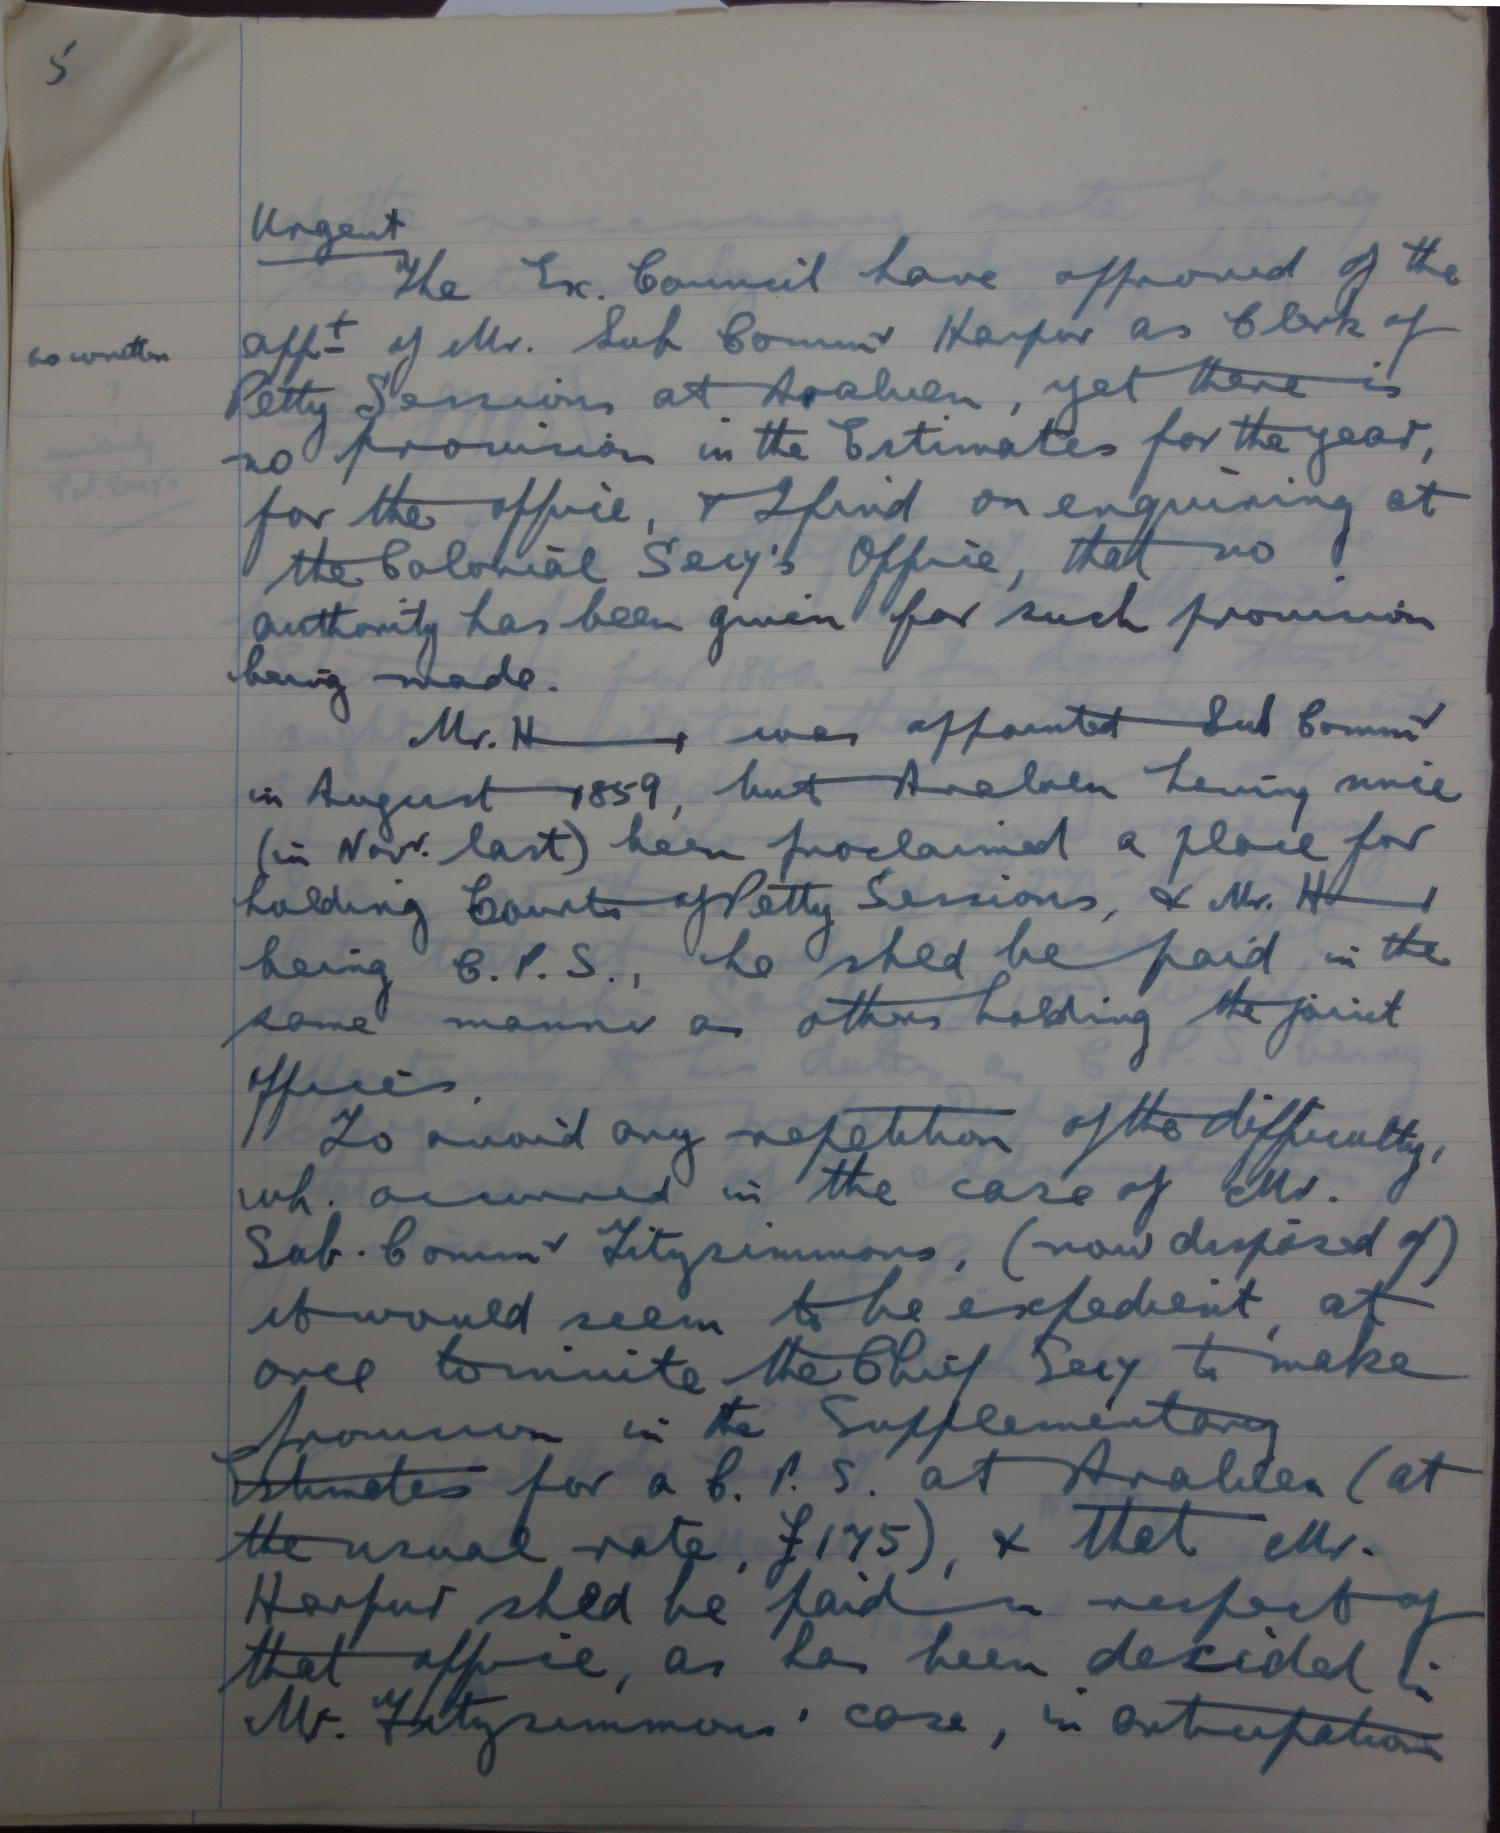 5
Urgent
The Ex. Council have approved of the
so written
appt of Mr. Sub Commr Harpur as Clerk of
Petty Sessions at Araluen, yet there is
no provision in the Estimates for the year,
for the office, & I find on enquiring at
the Colonial Secy's Office, that no
authority has been given for such provision
being made.
Mr. H—— was appointed Sub Commr
in August 1859, but Araluen having since
(in Novr. last) been proclaimed a place for
holding Courts of Petty Sessions, & Mr. H——
being C.P.S., he shld be paid in the
same manner as others holding the joint
offices.
To avoid any repetition of the difficulty,
wh. occurred in the case of Mr.
Sub. Commr Fitzsimmons, (now disposed of)
it would seem to be expedient, at
once to invite the Chief Secy to make
provision in the Supplementary
Estimates for a C.P.S. at Araluen (at
the usual rate, £175), & that Mr.
Harpur shld be paid in respect of
that office, as has been decided in
Mr. Fitzsimmons' case, in anticipation